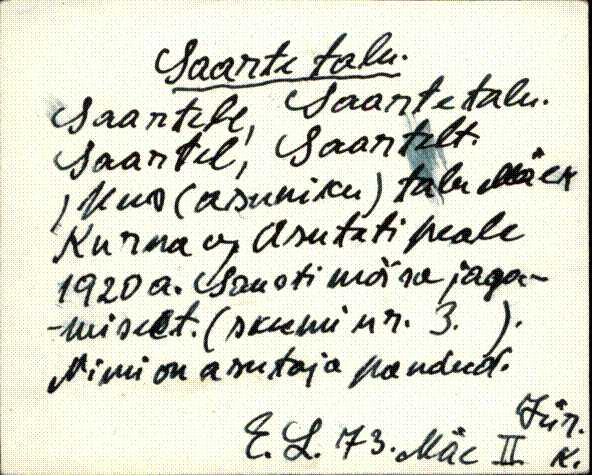 Saarte talu.
Saartele, Saarte talu.
Saartel, Saartelt.
, Uus (asuniku) talu Mäek
Kurna v, Asutati peale
1920 a. Sausti mõisa jaga-
-misect. (skeemi nr. 3. ).
Nimi on asutaja pandud.
Jür.
E. S. 73. Mäe II K.